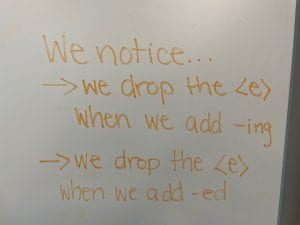 We notice...
→ we drop the <e>
when we add -ing
→ we drop the <e>
when we add -ed